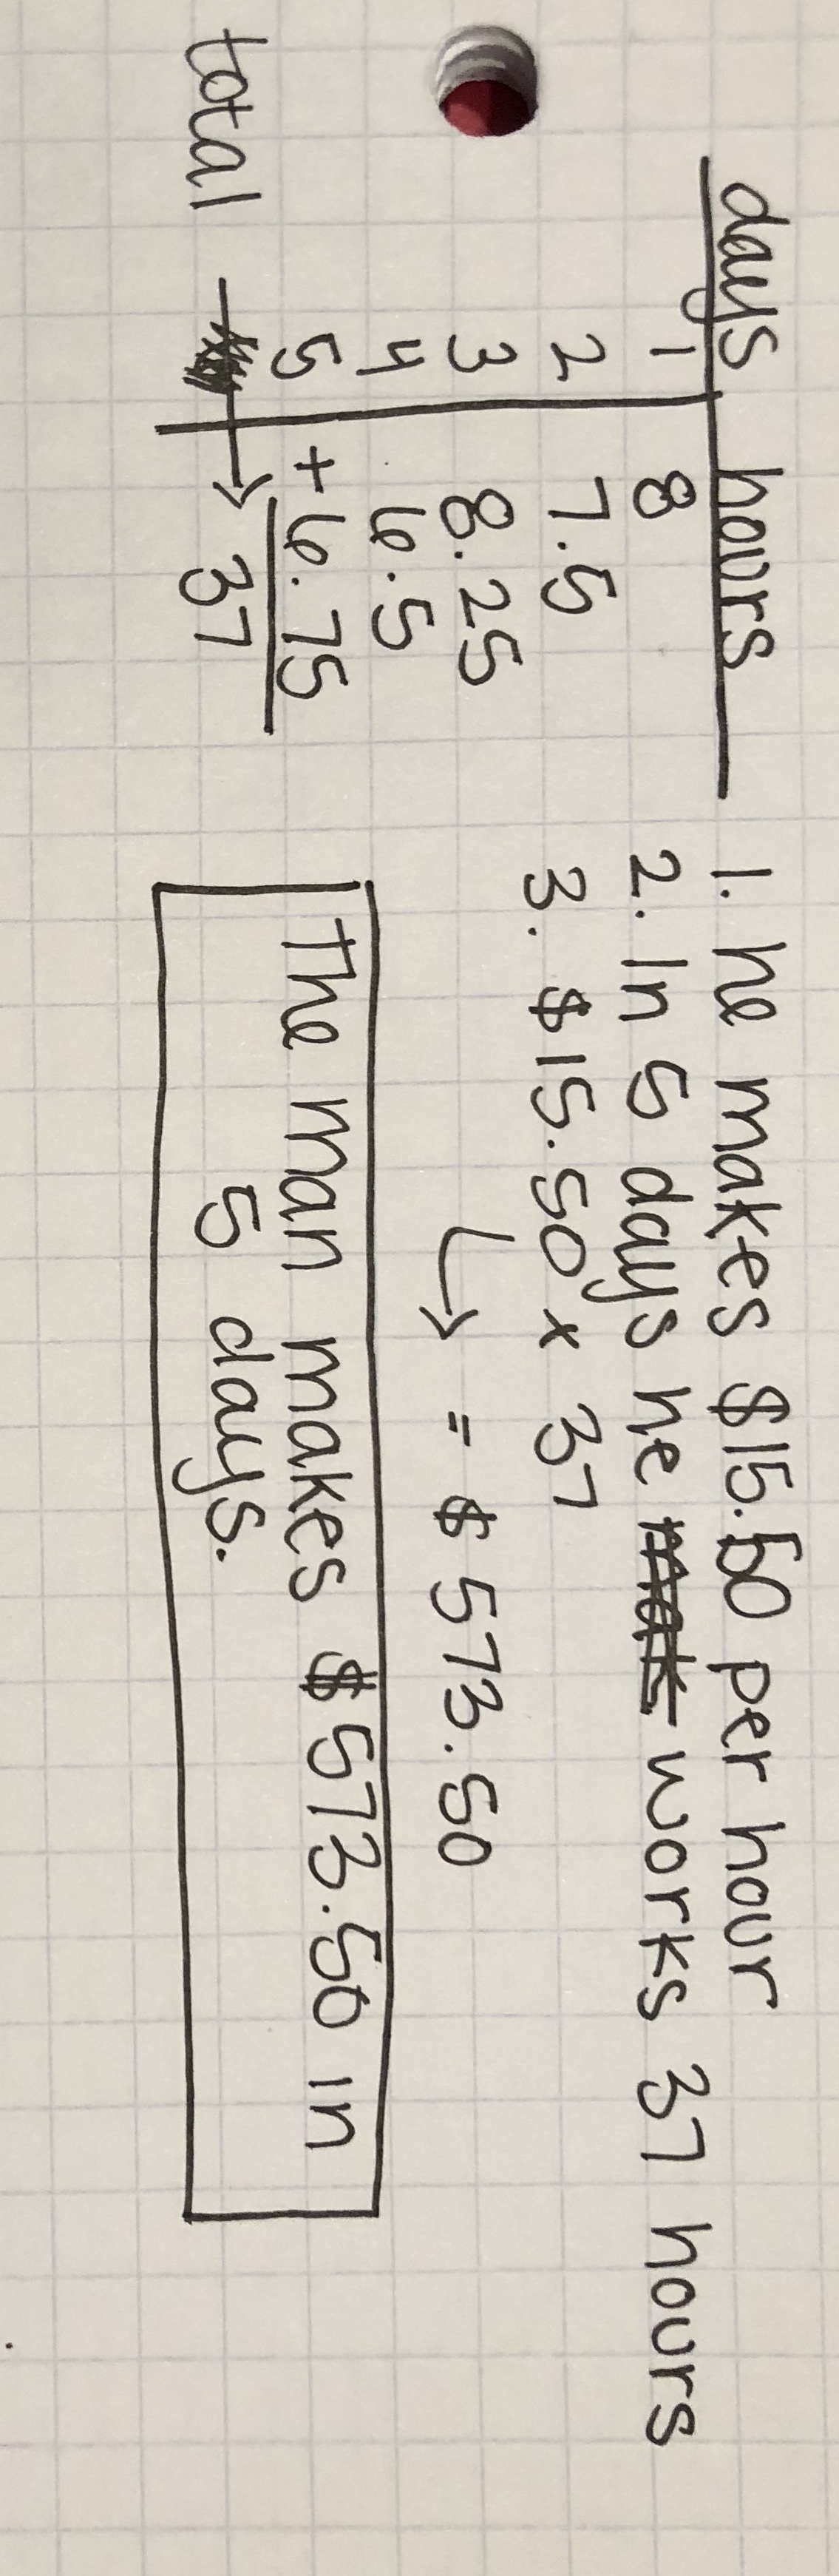 days hours
1 8
2 7.5
3 8.25
4 6.5
5 + 6.75
total → 37
1. he makes $15.50 per hour
2. In 5 days he works 37 hours
3. $15.50 x 37
↳ = $573.50
The man makes $573.50 in
5 days.